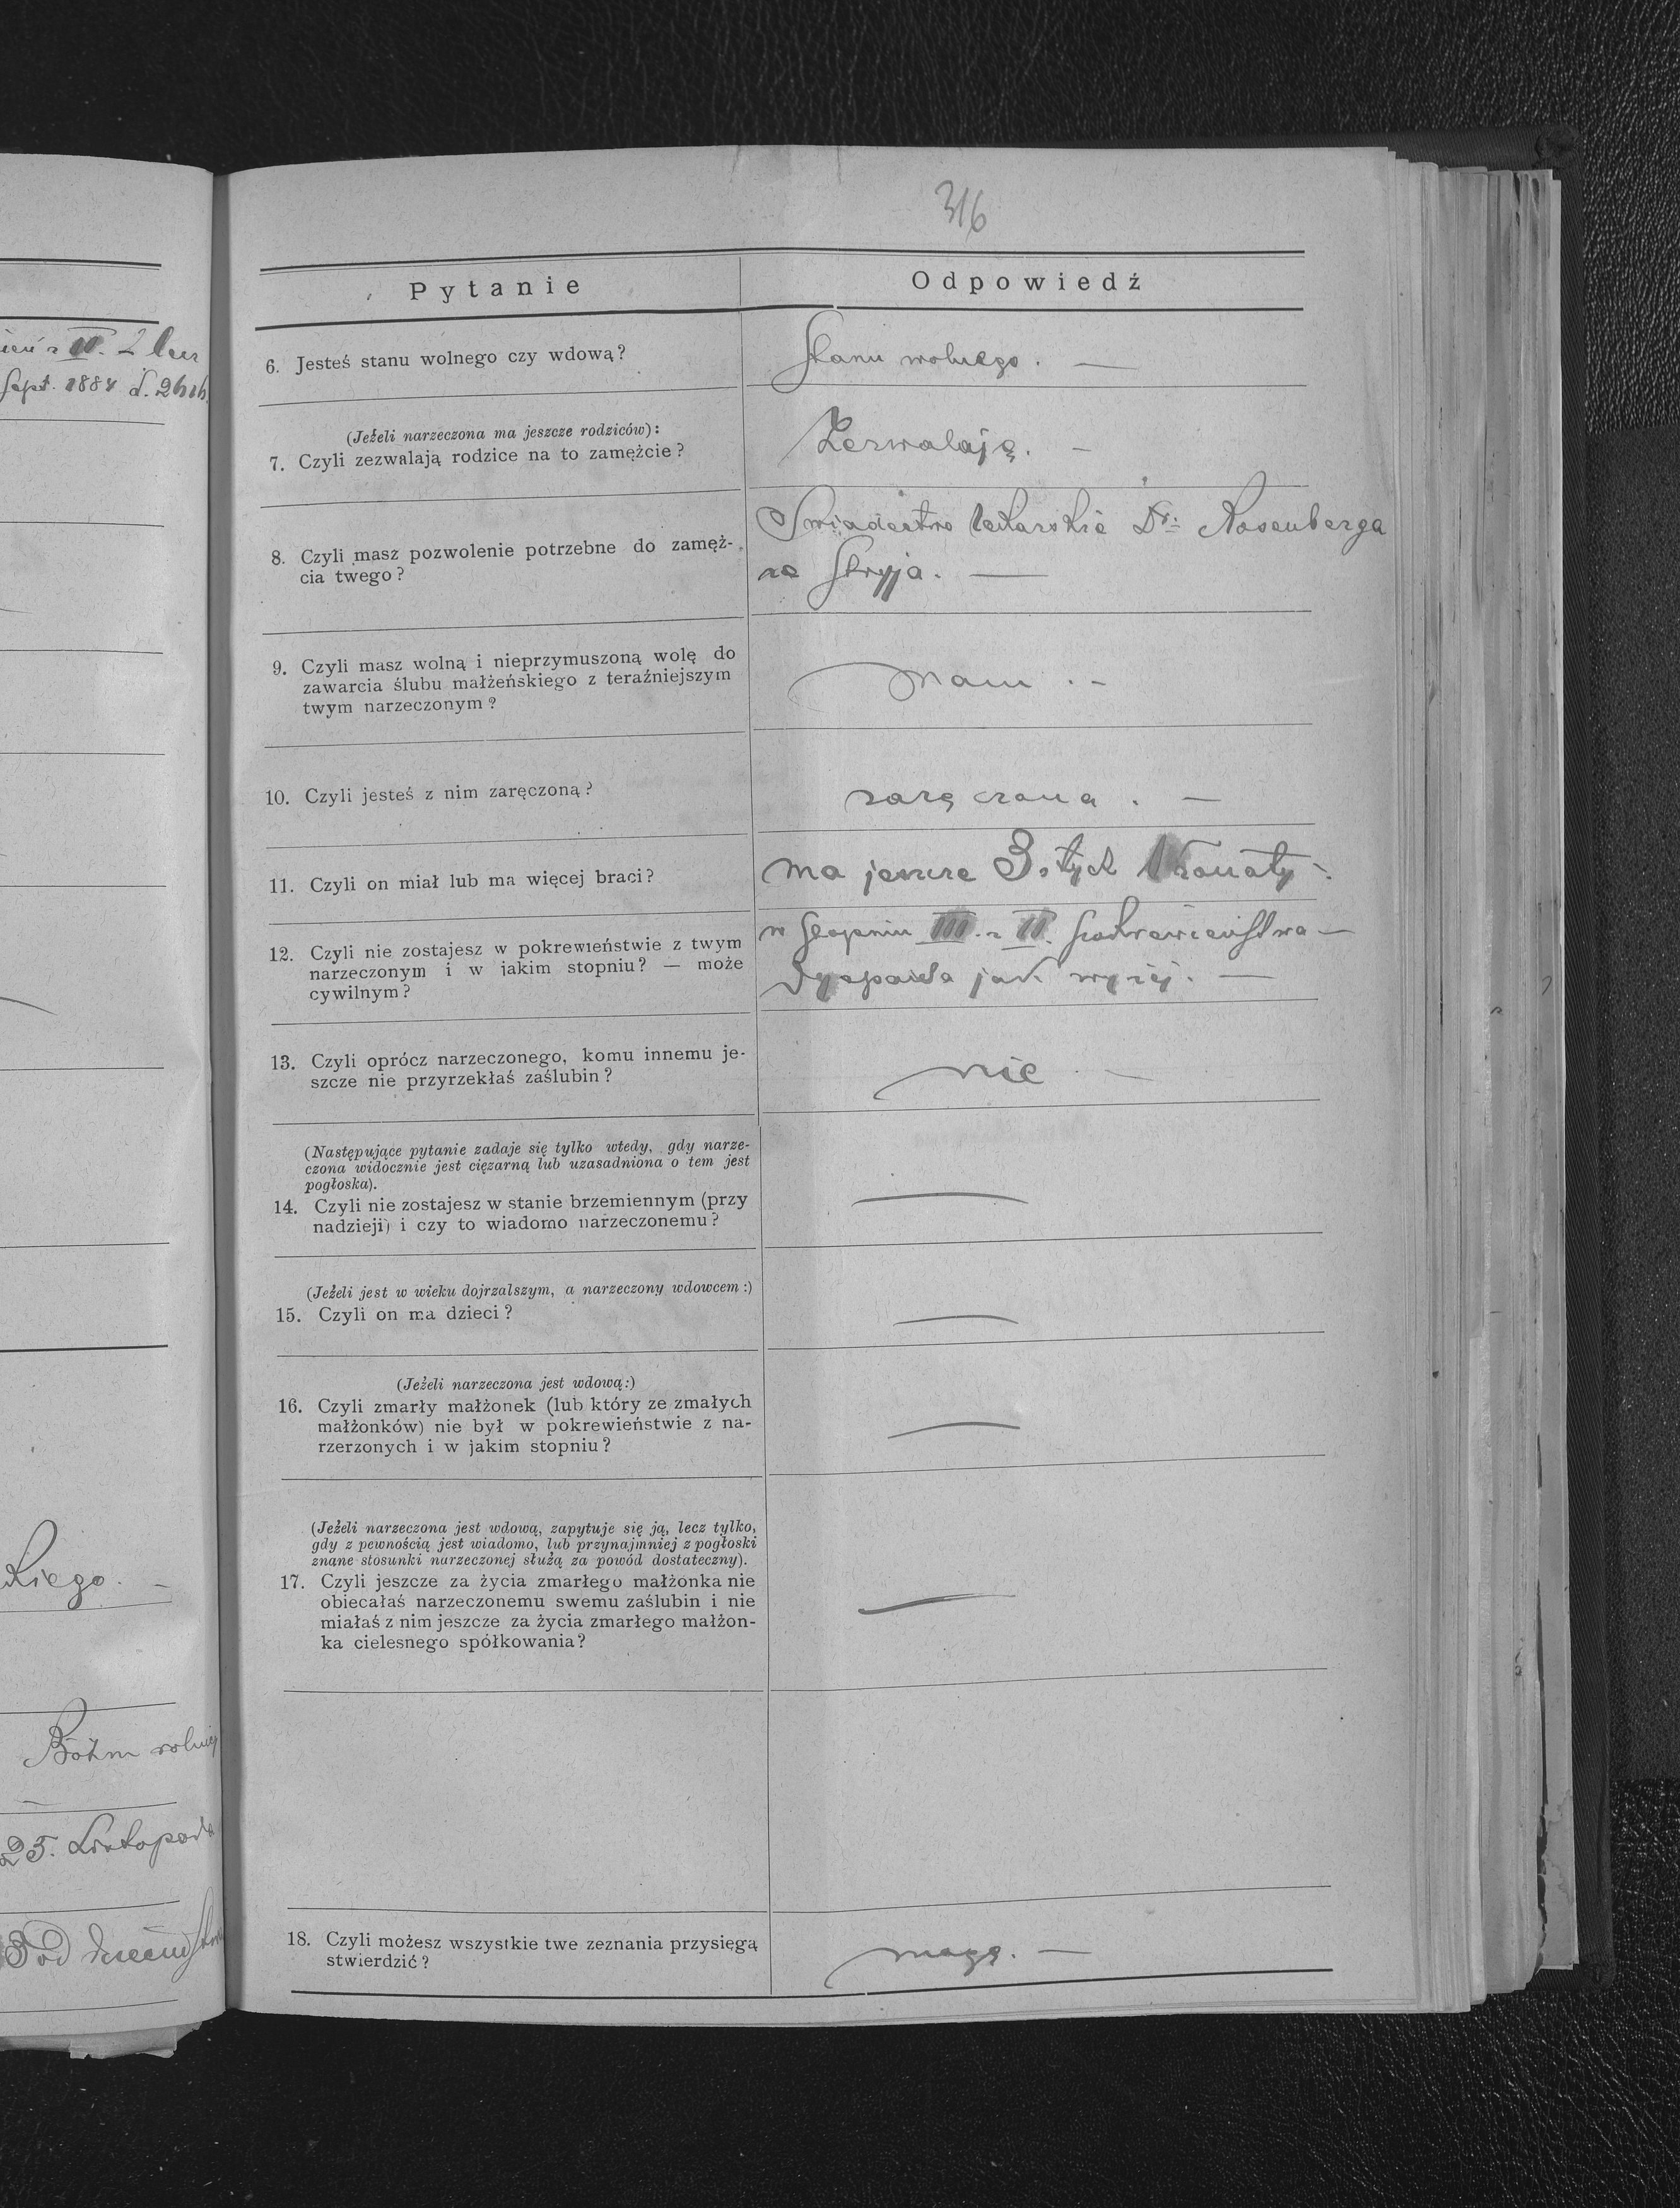 316
Pytanie
Odpowiedź
6. Jesteś stanu wolnego czy wdową?
Stanu wolnego. —
(Jeżeli narzeczona ma jeszcze rodziców):
7. Czyli zezwalają rodzice na to zamężcie?
Zezwalają. —
8. Czyli masz pozwolenie potrzebne do zamęż-
cia twego?
Świadectwo lekarskie Dr. Rosenberga
ze Stryja. —
9. Czyli masz wolną i nieprzymuszoną wolę do
zawarcia ślubu małżeńskiego z teraźniejszym
twym narzeczonym?
mam. —
10. Czyli jesteś z nim zaręczoną?
zaręczona. —
11. Czyli on miał lub ma więcej braci?
ma jeszcze 3
12. Czyli nie zostajesz w pokrewieństwie z twym
narzeczonym i w jakim stopniu? — może
cywilnym?
w stopniu III. pokrewieństwa —
jak wyżej. —
13. Czyli oprócz narzeczonego, komu innemu je-
szcze nie przyrzekłaś zaślubin?
nie —
(Następujące pytanie zadaje się tylko wtedy, gdy narze-
czona widocznie jest ciężarną lub uzasadniona o tem jest
pogłoska).
14. Czyli nie zostajesz w stanie brzemiennym (przy
nadzieji) i czy to wiadomo narzeczonemu?
—
(Jeżeli jest w wieku dojrzalszym, a narzeczony wdowcem:)
15. Czyli on ma dzieci?
—
(Jeżeli narzeczona jest wdową:)
16. Czyli zmarły małżonek (lub który ze zmałych
małżonków) nie był w pokrewieństwie z na-
rzerzonych i w jakim stopniu?
—
(Jeżeli narzeczona jest wdową, zapytuje się ją, lecz tylko,
gdy z pewnością jest wiadomo, lub przynajmniej z pogłoski
znane stosunki narzeczonej służą za powód dostateczny).
17. Czyli jeszcze za życia zmarłego małżonka nie
obiecałaś narzeczonemu swemu zaślubin i nie
miałaś z nim jeszcze za życia zmarłego małżon-
ka cielesnego spółkowania?
—
18. Czyli możesz wszystkie twe zeznania przysięgą
stwierdzić?
mogę. —
Sept. 1884
kiego. —
Böhm
25. Listopada